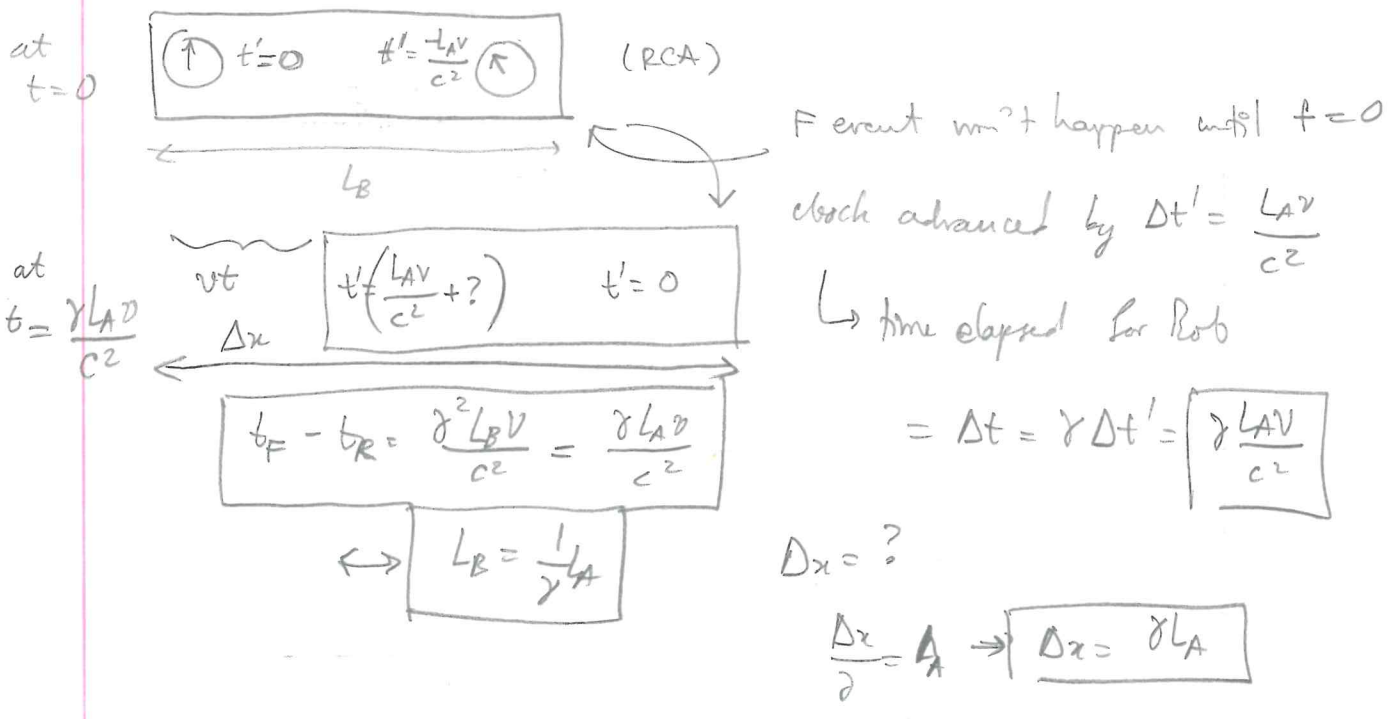 at
t=0
t'=0 t'=-L_Av/c²
(RCA)
L_B
F event won't happen until t=0
clock advanced by Δt' = L_Av/c²
↳ time elapsed for Rob
= Δt = γΔt' = γL_Av/c²
at
t = γL_Av/c²
vt
t'=(L_Av/c²+?) t'=0
Δx
t_F - t_R = γ²L_Bv/c² = γL_Av/c²
↔ L_B = 1/γ L_A
Δx = ?
Δx/γ = L_A → Δx = γL_A